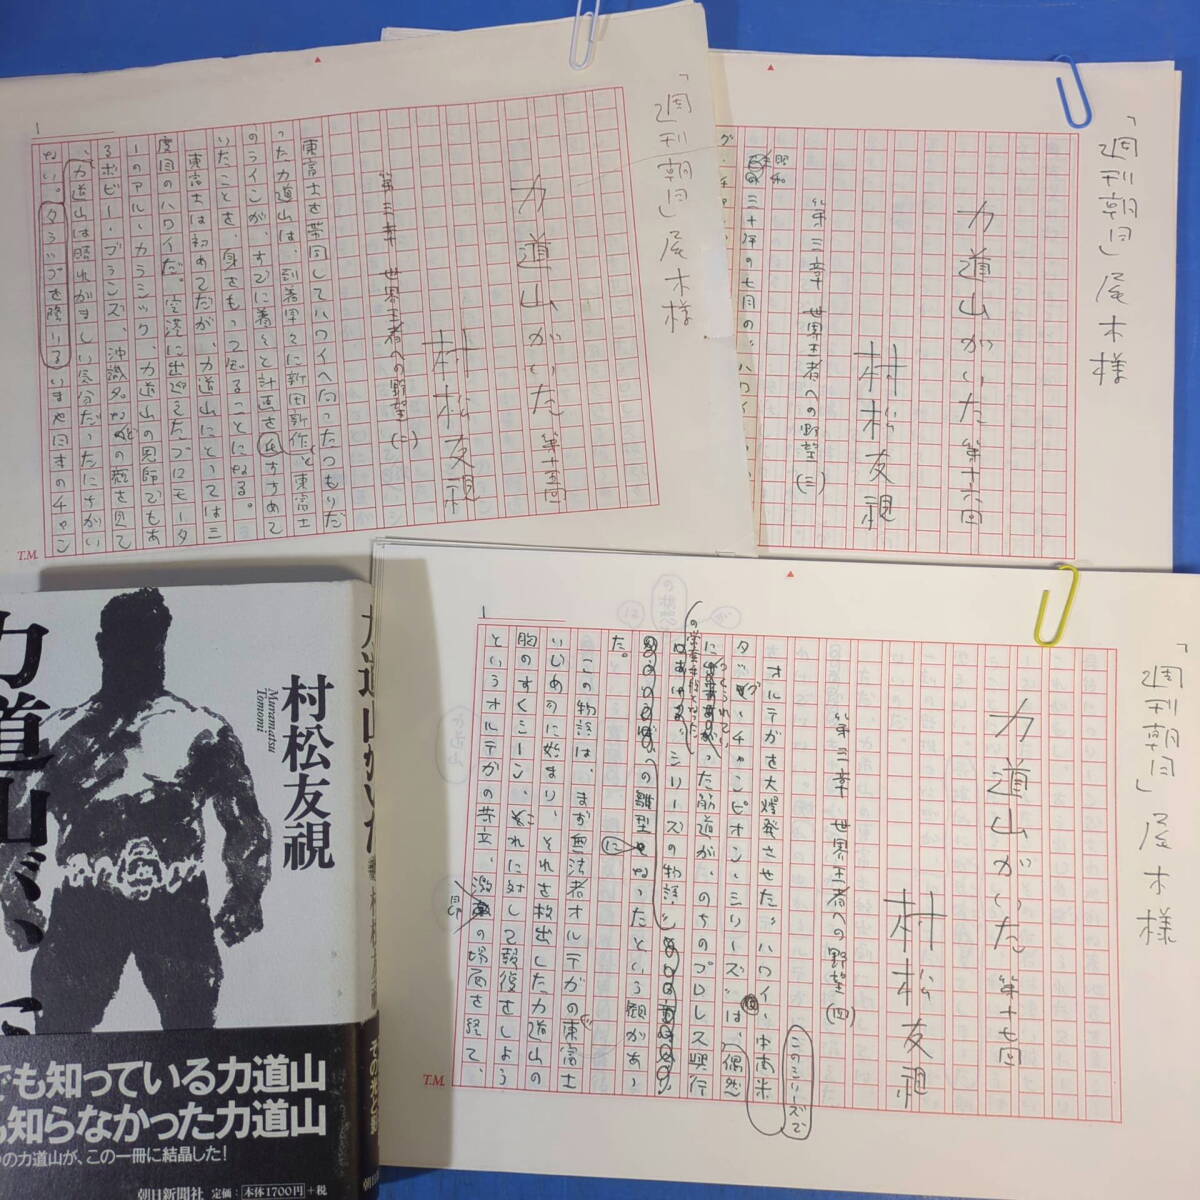 「週刊朝日」尾木様
力道山がいた 第十五回
村松友視
第三章 世界王者への野望(二)
東富士を帯同してハワイへ向ったつもりだ
った力道山は、到着早々に新田新作と東富士
のラインが、すでに着々と計画を
いたことを、身をもって知ることになる。
東富士は初めてだが、力道山にとっては三
度目のハワイだ。空港に出迎えたプロモータ
ーのアル・カラシック、力道山の恩師でもあ
るボビー・ブランズ、沖識名などの顔を見て
、力道山は晴れがましい気分だったにちがい
ない。タラップを降りるいまや日本のチャン
1
T.M.
「週刊朝日」尾木様
力道山がいた 第十六回
村松友視
第三章 世界王者への野望(三)
昭和三十年の七月の、ハワイ
「週刊朝日」尾木様
力道山がいた 第十七回
村松友視
第三章 世界王者への野望(四)
このシリーズで
オルテガを大爆発させた〝ハワイ・中南米
タッグ・チャンピオン・シリーズ〟は、偶然
につくられていった筋道が、のちのプロレス興行
の常套手段となった
シリーズの物語
への雛型になったという観があっ
た。
この物語は、まず無法者オルテガの東富士
いじめに始まり、それを救出した力道山の
胸のすくシーン、それに対して報復をしよう
というオルテガの共立、激昂の場面を経て、
1
T.M.
村松友視
Muramatsu
Tomomi
力道山がいた
でも知っている力道山
も知らなかった力道山
の力道山が、この一冊に結晶した!
朝日新聞社 定価:本体1700円+税
力道山がいた
村松友視